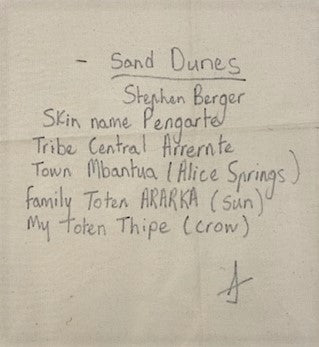 - Sand Dunes
Stephen Berger
Skin name Pengarte
Tribe Central Arrernte
Town Mbantua (Alice Springs)
family Toten ARARKA (sun)
My Toten Thipe (crow)